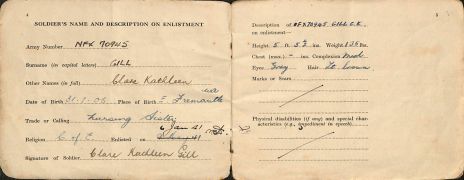 4
SOLDIER'S NAME AND DESCRIPTION ON ENLISTMENT
Army Number NFX 70945
Surname (in capital letters) GILL
Other Names (in full) Clare Kathleen
Date of Birth 31.1.06 Place of Birth E Fremantle WA
Trade or Calling Nursing Sister
6 Jan 41
Religion C of E Enlisted on
Signature of Soldier. Clare Kathleen Gill
5
Description of NFX70945 GILL C.K.
on enlistment—
Height 5 ft. 5½ ins. Weight
Chest (max.) — ins. Complexion Med
Eyes Grey Hair Lt brown
Marks or Scars
Physical disabilities (if any) and special char-
acteristics (e.g., impediment in speech)